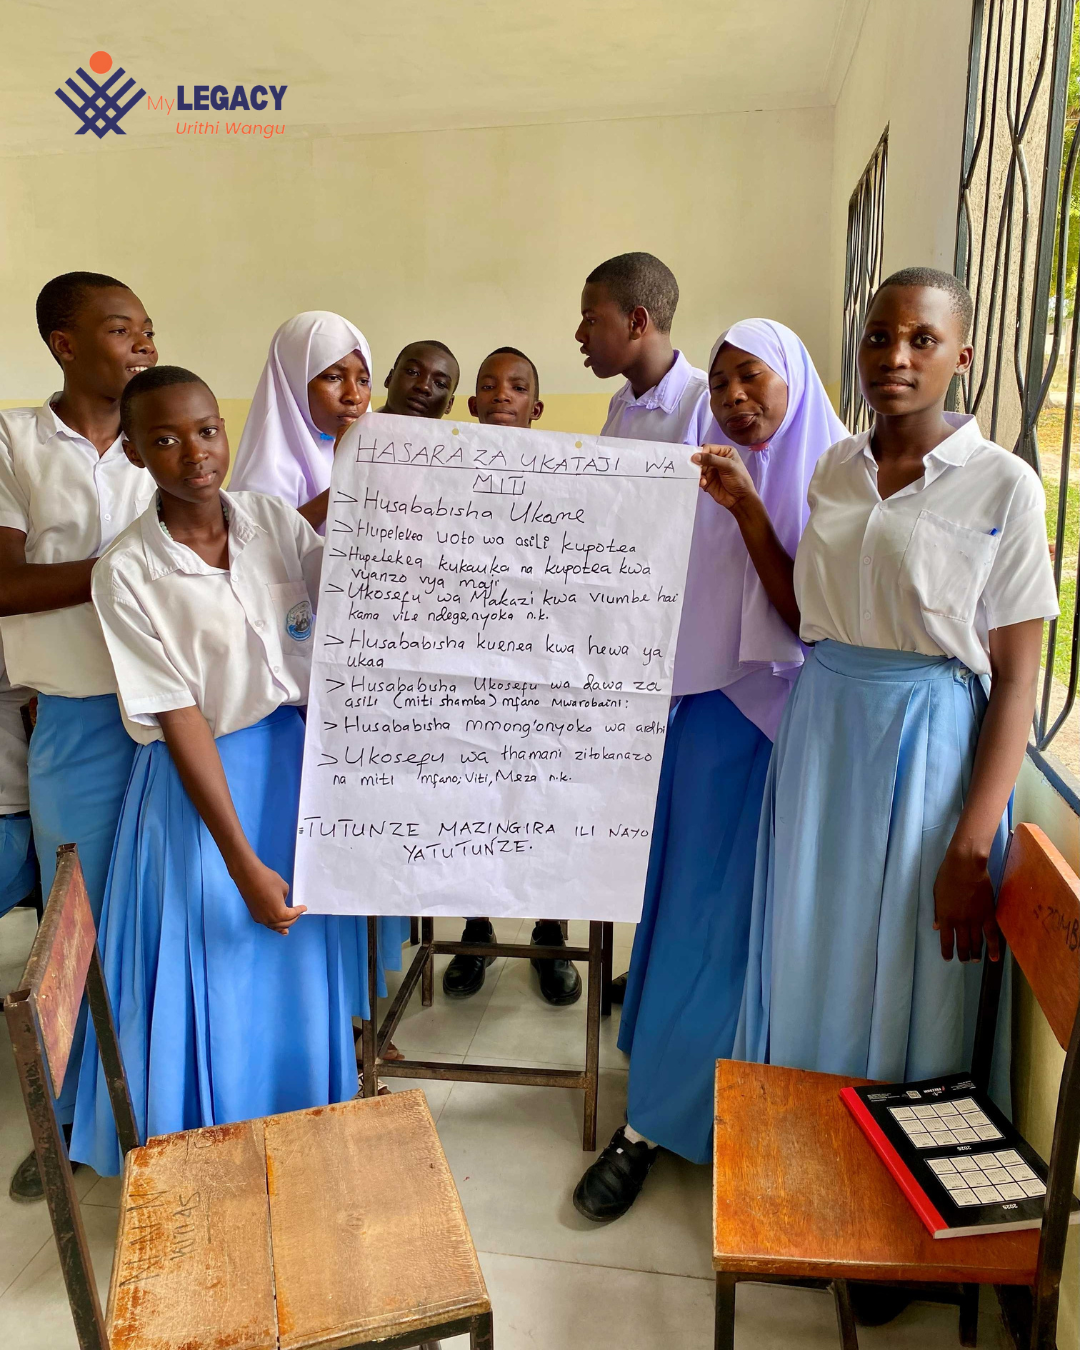 My LEGACY
Urithi Wangu
HASARA ZA UKATAJI WA
MITI
> Husababisha Ukame
> Hupelekea uoto wa asili kupotea
> Hupelekea kukauka na kupotea kwa
vyanzo vya maji
> Ukosefu wa Makazi kwa viumbe hai
kama vile ndege, nyoka n.k.
> Husababisha kuenea kwa hewa ya
ukaa
> Husababuha Ukosefu wa dawa za
asili (miti shamba) mfano Mwarobaini:
> Husababisha mmong'onyoko wa ardhi
> Ukosefu wa thamani zitokanazo
na miti mfano; Viti, Meza n.k.
=TUTUNZE MAZINGIRA ILI NAYO
YATUTUNZE.
2026
2025